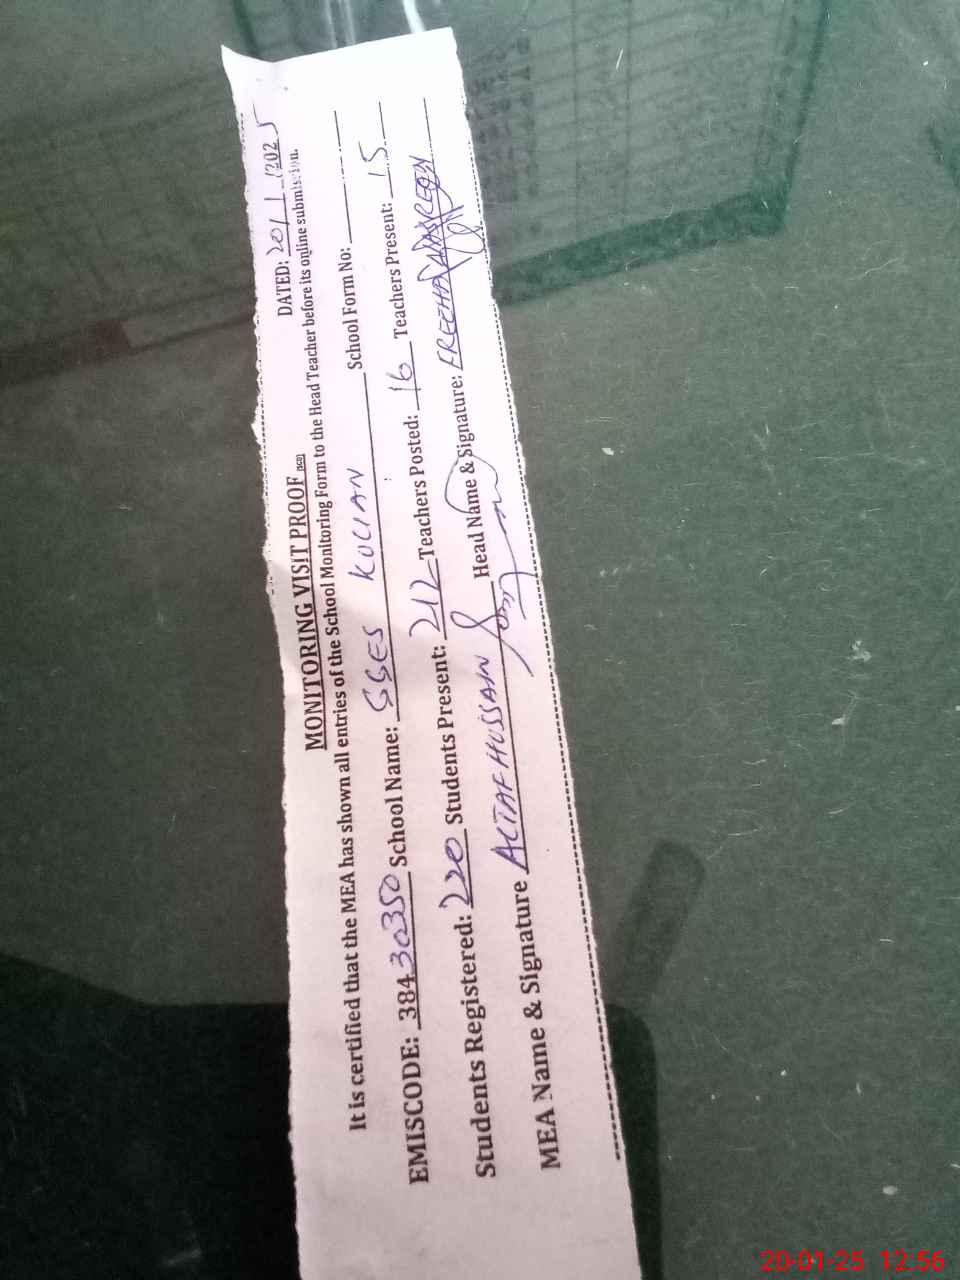 DATED: 20/1/2025
MONITORING VISIT PROOF
It is certified that the MEA has shown all entries of the School Monitoring Form to the Head Teacher before its online submission.
EMISCODE: 38430350 School Name: GGES KULIAN School Form No:
Students Registered: 220 Students Present: 212 Teachers Posted: 16 Teachers Present: 15
MEA Name & Signature ALTAF HUSSAIN Head Name & Signature:
20-01-25 12:56